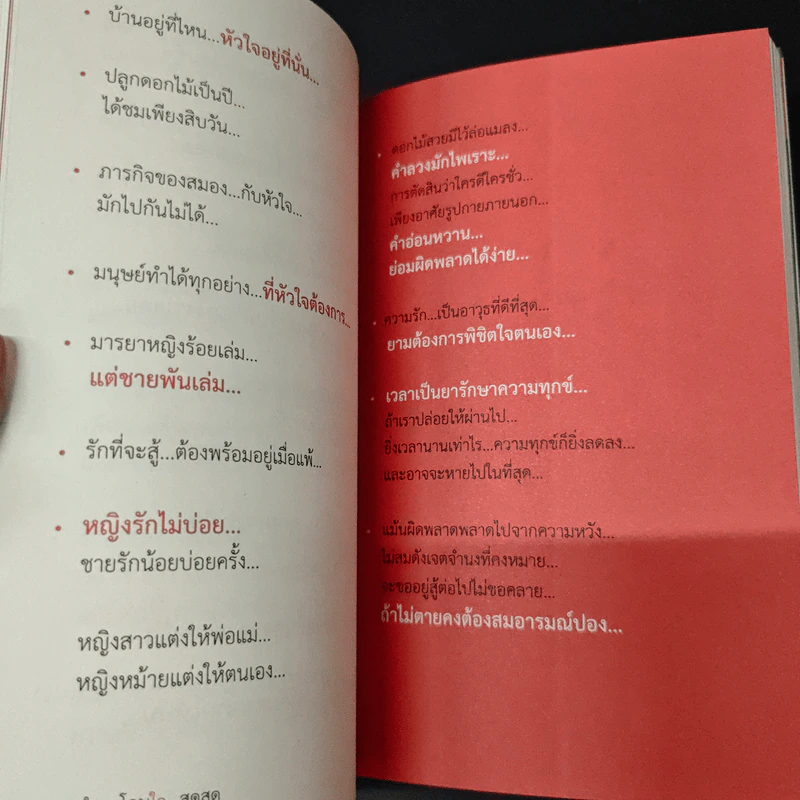 บ้านอยู่ที่ไหน...หัวใจอยู่ที่นั่น...
ปลูกดอกไม้เป็นปี...
ได้ชมเพียงสิบวัน...
ภารกิจของสมอง...กับหัวใจ...
มักไปกันไม่ได้...
มนุษย์ทำได้ทุกอย่าง...ที่หัวใจต้องการ...
มารยาหญิงร้อยเล่ม...
แต่ชายพันเล่ม...
รักที่จะสู้...ต้องพร้อมอยู่เมื่อแพ้...
หญิงรักไม่บ่อย...
ชายรักน้อยบ่อยครั้ง...
หญิงสาวแต่งให้พ่อแม่...
หญิงหม้ายแต่งให้ตนเอง...
สดสด
ดอกไม้สวยมีไว้ล่อแมลง...
คำลวงมักไพเราะ...
การตัดสินว่าใครดีใครชั่ว...
เพียงอาศัยรูปกายภายนอก...
คำอ่อนหวาน...
ย่อมผิดพลาดได้ง่าย...
ความรัก...เป็นอาวุธที่ดีที่สุด...
ยามต้องการพิชิตใจตนเอง...
เวลาเป็นยารักษาความทุกข์...
ถ้าเราปล่อยให้ผ่านไป...
ยิ่งเวลานานเท่าไร...ความทุกข์ก็ยิ่งลดลง...
และอาจจะหายไปในที่สุด...
แม้นผิดพลาดพลาดไปจากความหวัง...
ไม่สมดังเจตจำนงที่คงหมาย...
จะขออยู่สู้ต่อไปไม่ขอคลาย...
ถ้าไม่ตายคงต้องสมอารมณ์ปอง...